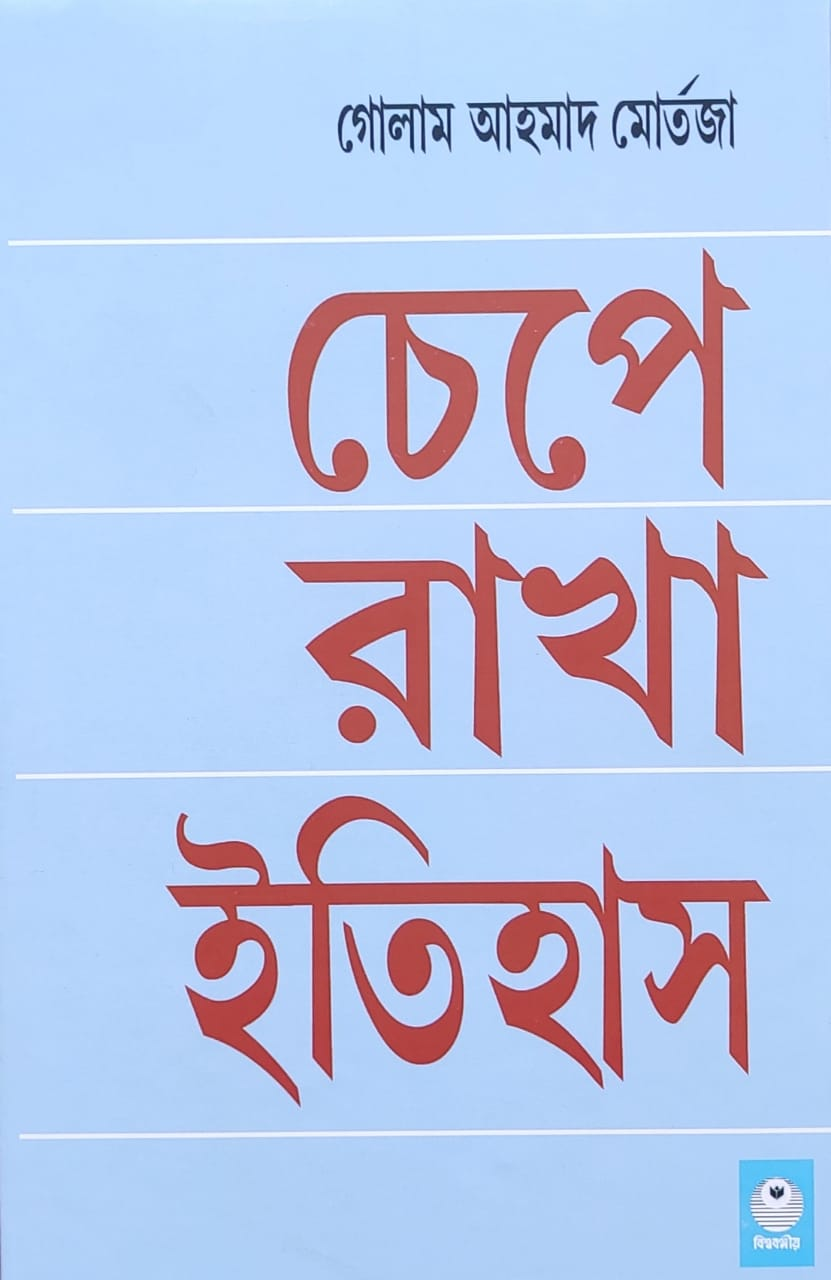 গোলাম আহমাদ মোর্তজা
চেপে
রাখা
ইতিহাস
বিশ্ববঙ্গীয়